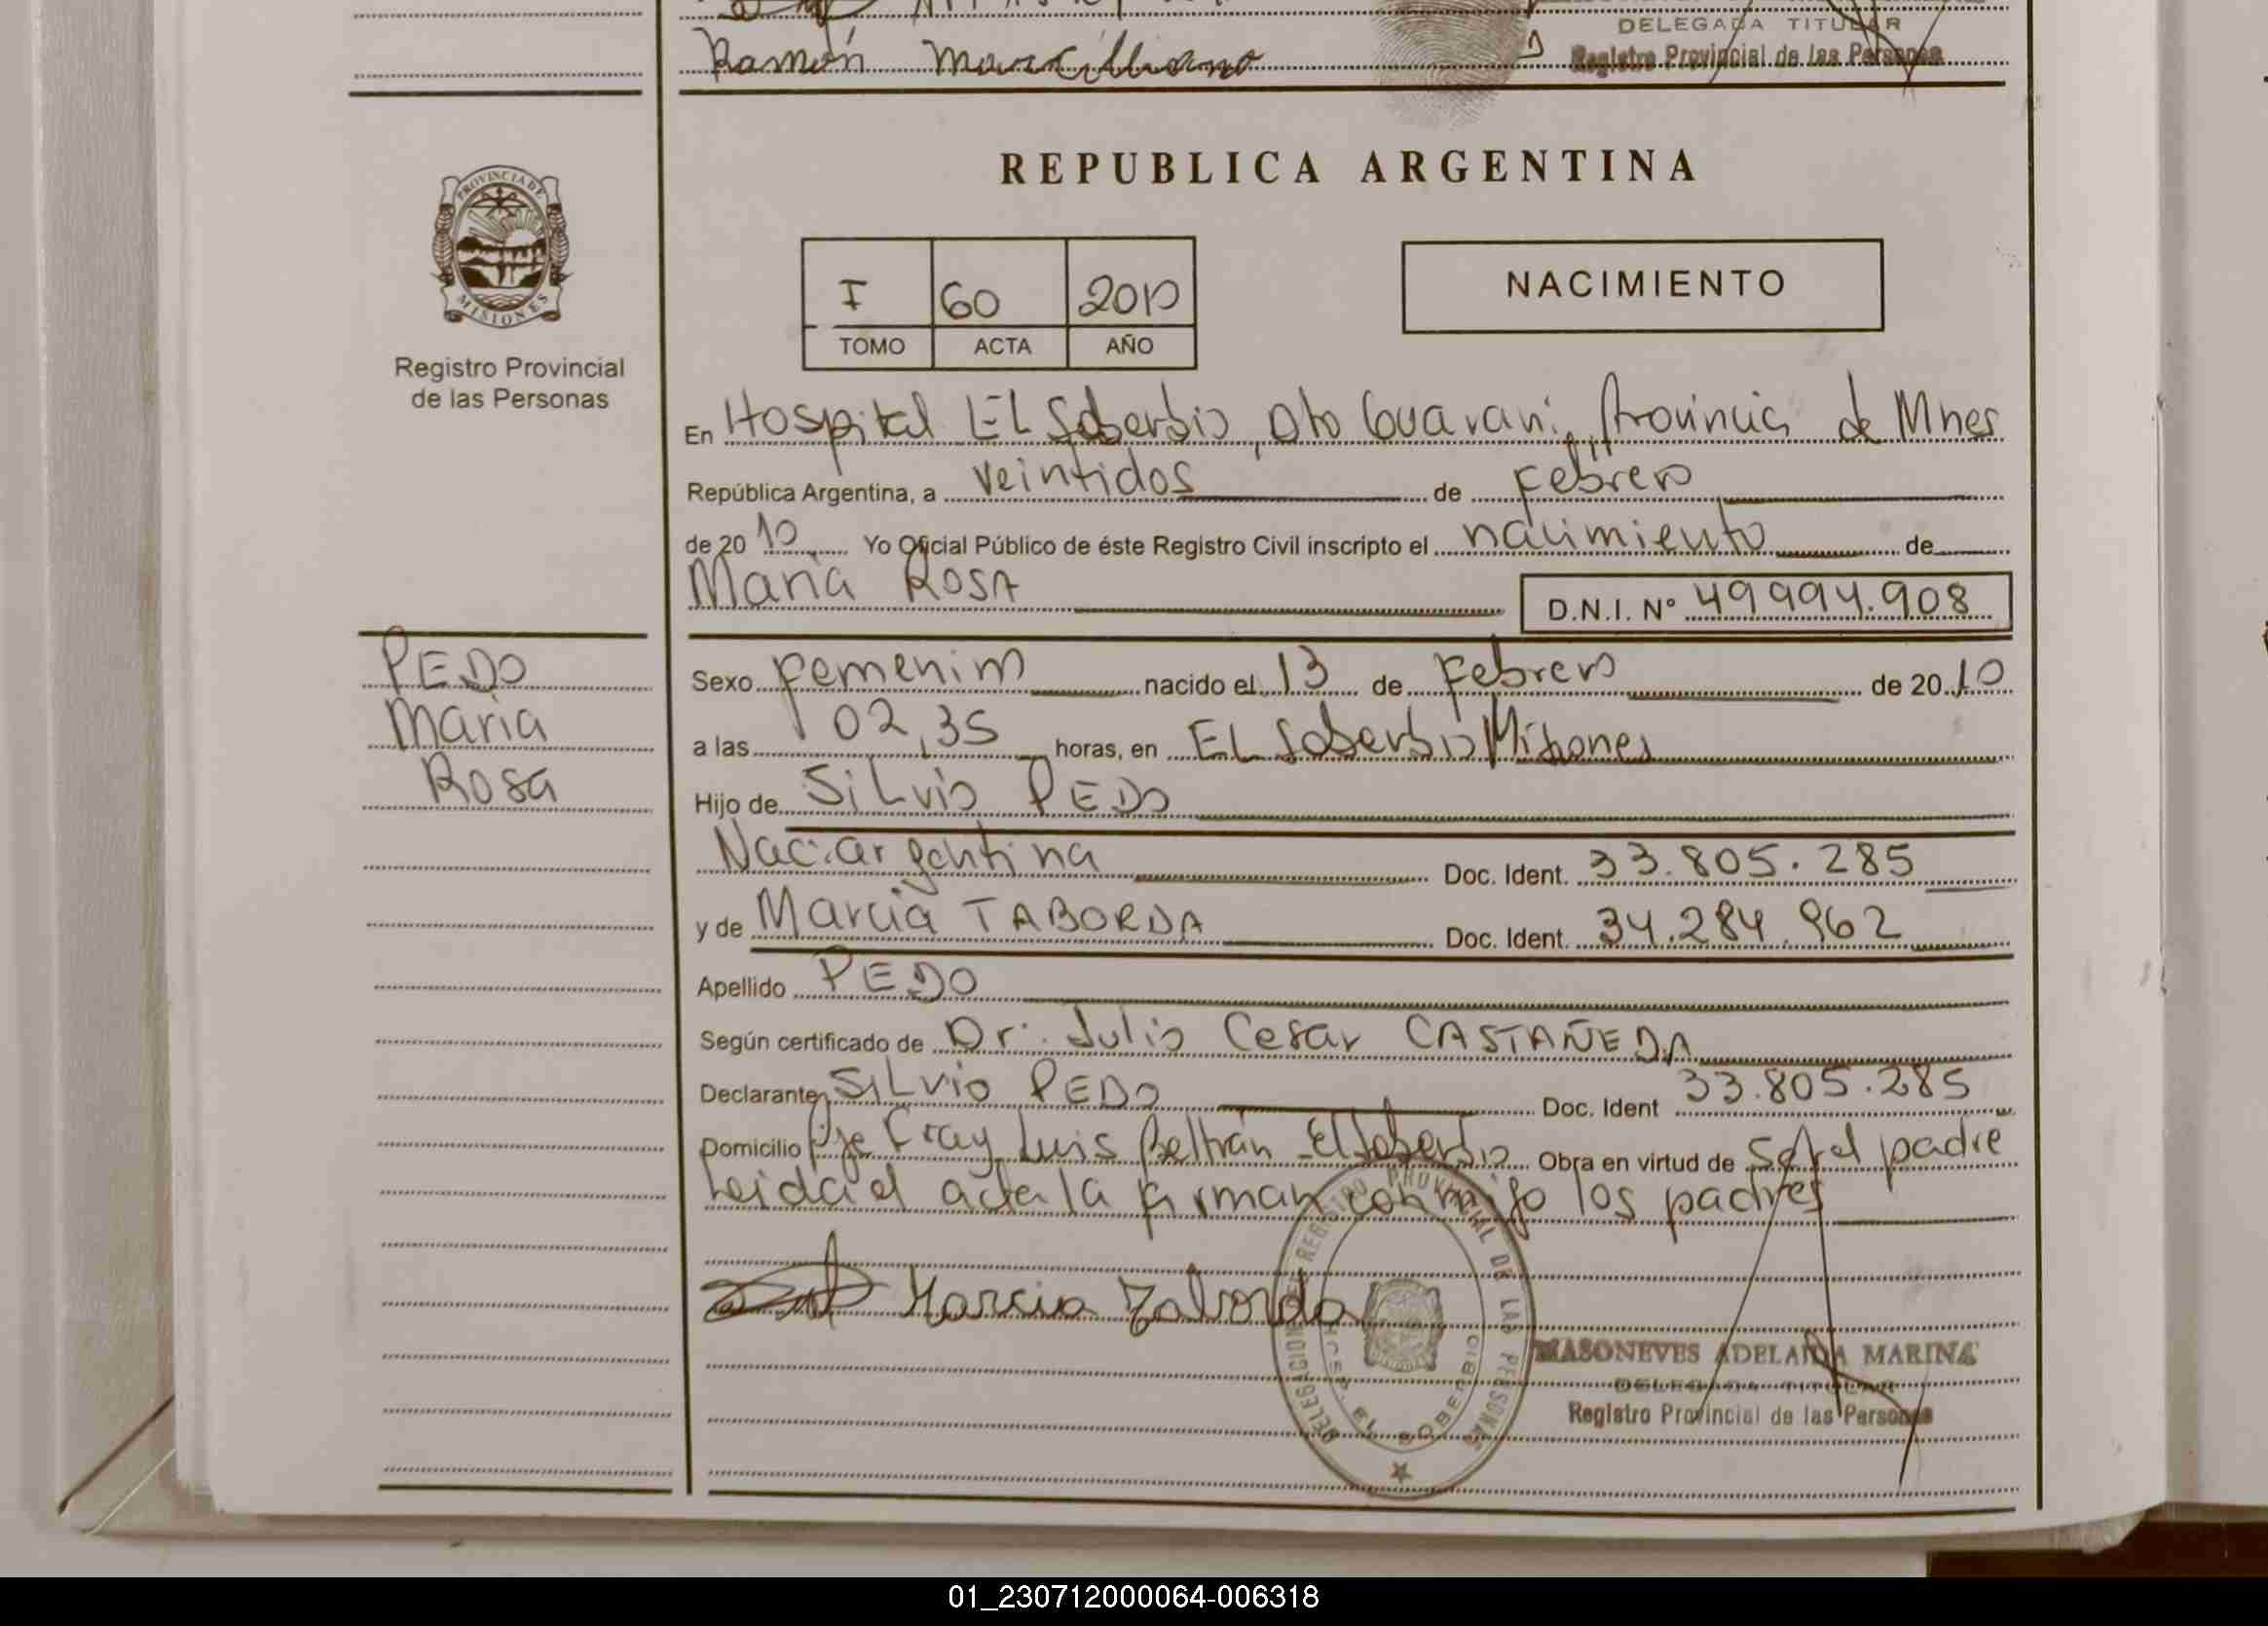 DELEGADA TITULAR
Ramón Marcilliano
Registro Provincial de las Personas
PROVINCIA DE
MISIONES
Registro Provincial
de las Personas
REPUBLICA ARGENTINA
I 60 2010
TOMO ACTA AÑO
NACIMIENTO
En Hospital EL Soberbio, Dto Guaraní, Provincia de Mnes
República Argentina, a veintidos de Febrero
de 2010 Yo Oficial Público de éste Registro Civil inscripto el nacimiento de
Maria Rosa
D.N.I. Nº 49994.908
PEDO
Maria
Rosa
Sexo Femenino nacido el 13 de Febrero de 2010
a las 02,35 horas, en EL Soberbio Misiones
Hijo de SiLvio PEDO
Nac: argentina Doc. Ident. 33.805.285
y de Marcia TABORDA Doc. Ident. 34.284.962
Apellido PEDO
Según certificado de Dr. Julio Cesar CASTAÑEDA
Declarante SiLvio PEDO Doc. Ident 33.805.285
Domicilio Pje Fray Luis Beltrán El Soberbio Obra en virtud de Ser el padre
Leida el acta la firman conmigo los padres
Marcia Taborda
DELEGACION REGISTRO PROVINCIAL DE LAS PERSONAS
EL SOBERBIO
MASONEVES ADELAIDA MARINA
DELEGADA TITULAR
Registro Provincial de las Personas
01_230712000064-006318